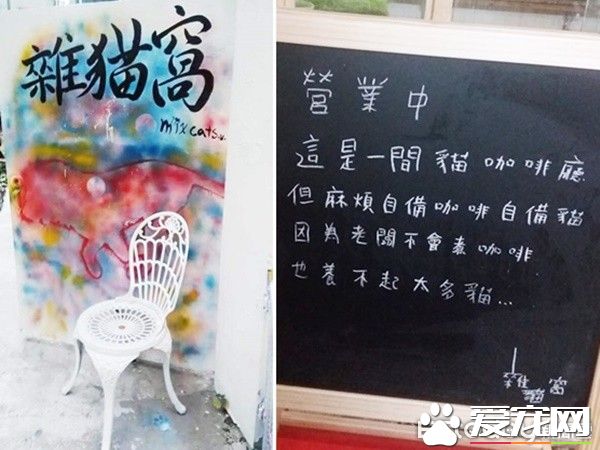 雜猫窩
mix cats
營業中
這是一間貓咖啡廳
但麻煩自備咖啡自備貓
因為老闆不會煮咖啡
也養不起太多貓...
雜貓窩
爱宠网